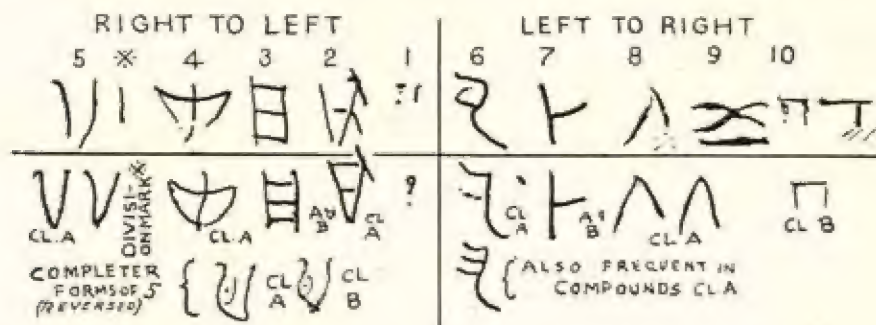 RIGHT TO LEFT
5 ※ 4 3 2 1
CL.A
DIVISI-
ONMARK※
CL.A
A&
B
CL
A
?
COMPLETER
FORMS OF 5
(REVERSED)
CL
A
CL
B
LEFT TO RIGHT
6 7 8 9 10
CL
A
A&
B
CL A
CL B
ALSO FREQUENT IN
COMPOUNDS CL A